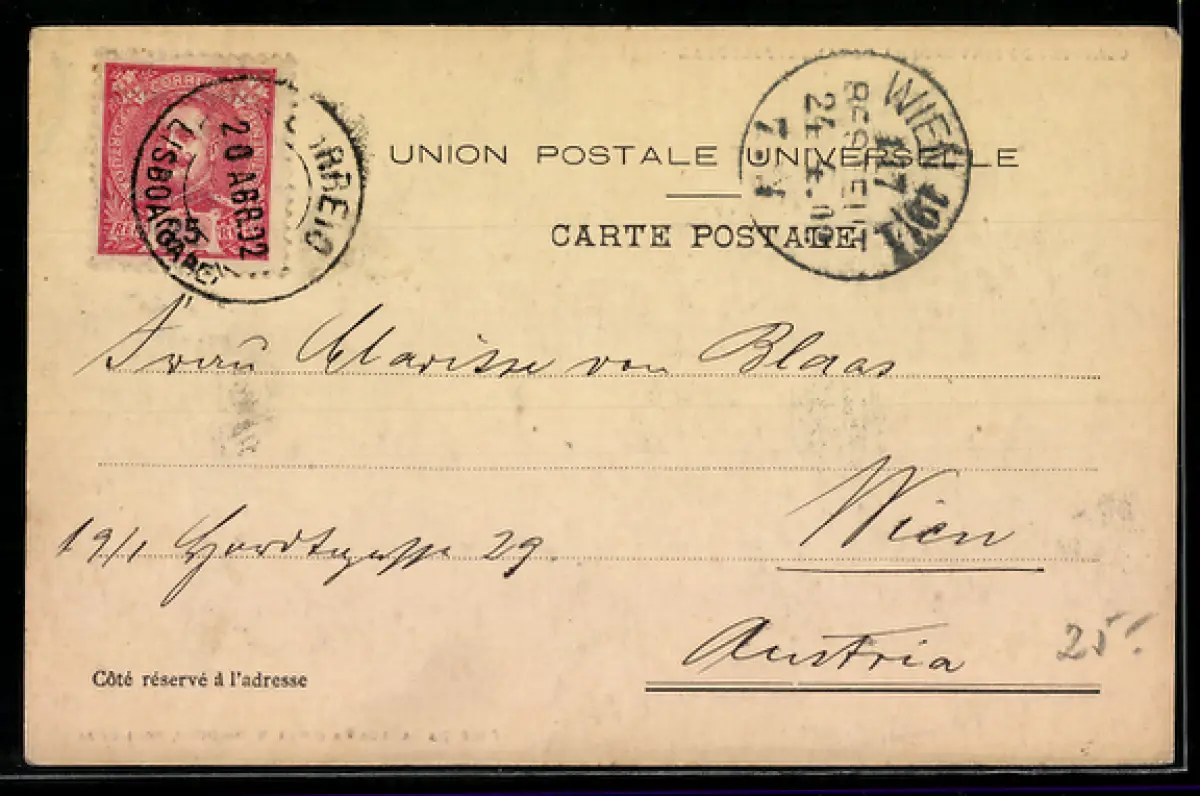 CORREIO
20 ABR. 02
LISBOA
WIEN 19/1
117
BESTELLT
24.4.02
UNION POSTALE UNIVERSELLE
CARTE POSTALE
Frau Clarisse von Blaas
Wien
19/1 Hardtgasse 29.
Austria
25.
Côté réservé à l'adresse